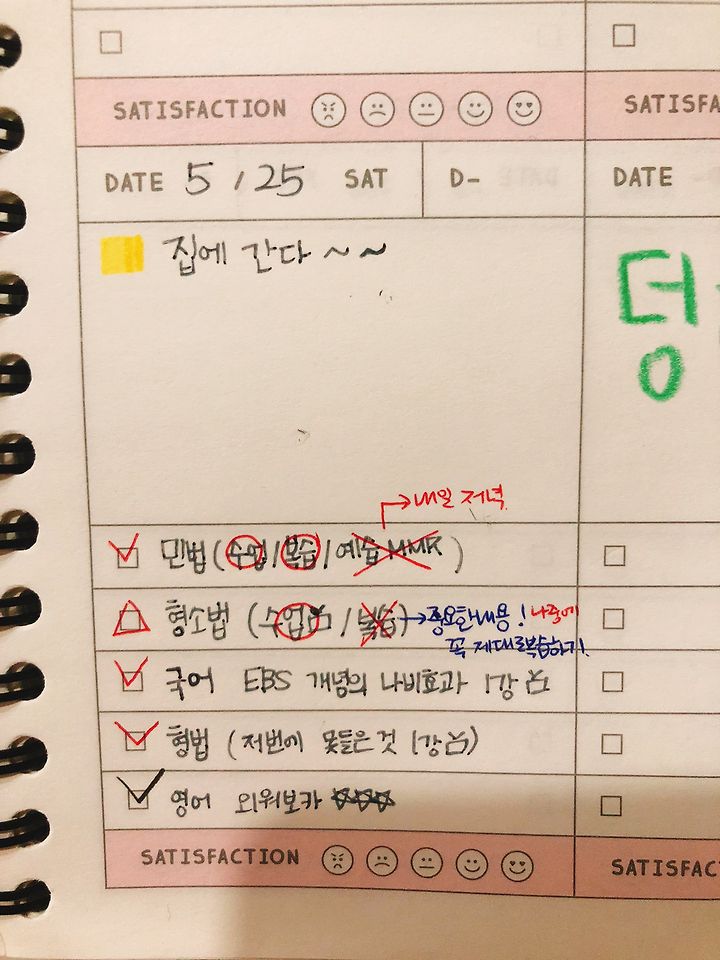 SATISFACTION
SATISFA
DATE 5/25 SAT D-
DATE
집에 간다~~
덩
내일 저녁
민법(수업/복습/예습 MMR)
형소법 (수업 /복습)→중요한내용! 나중에
꼭 제대로복습하기!
국어 EBS 개념의 나비효과 1강
형법 (저번에 못들은것 1강)
영어 외워보카
SATISFACTION
SATISFAC